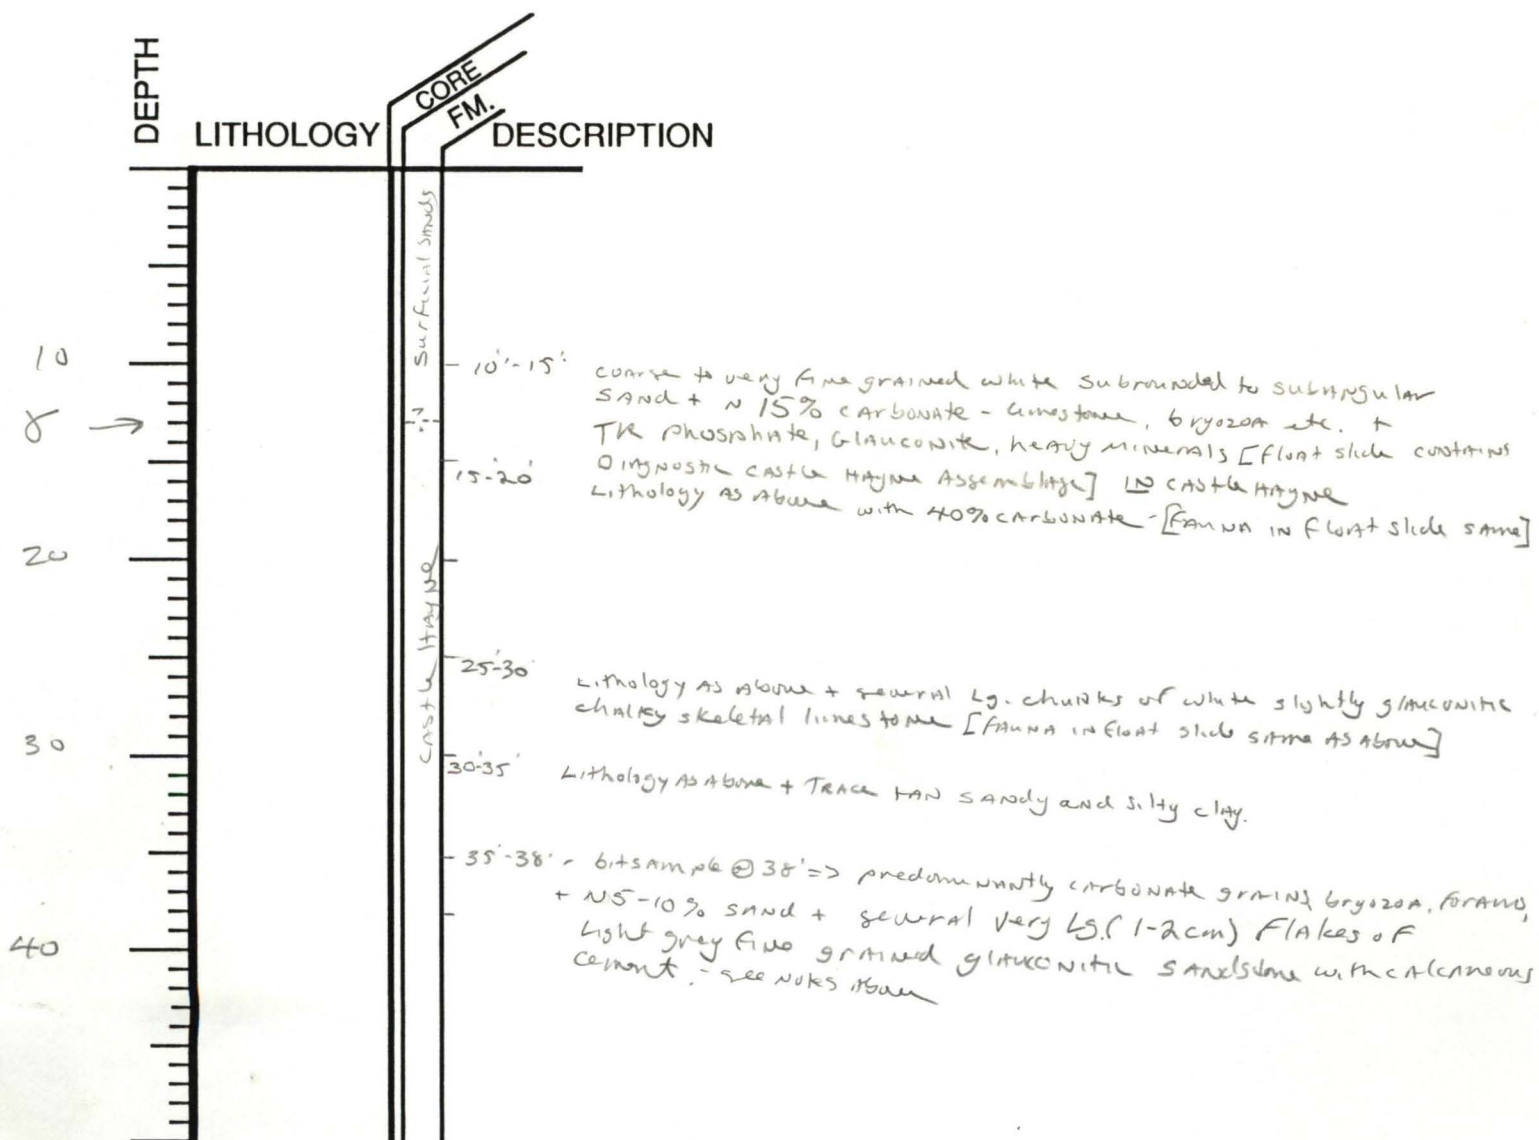 DEPTH
LITHOLOGY
CORE
FM.
DESCRIPTION
Surficial Sands
10
10'-15'
coarse to very fine grained white subrounded to subangular
sand + ~ 15% carbonate - limestone, bryozoa etc. +
-?-
γ →
TR phosphate, glauconite, heavy minerals [float slide contains
15'-20'
Diagnostic Castle Hayne Assemblage] IN Castle Hayne
Lithology as Above with 40% carbonate - [FAUNA IN float slide same]
20
Castle Hayne
25'-30'
Lithology As Above + several Lg. chunks of white slightly glauconitic
chalky skeletal limestone [FAUNA in float slide same As Above]
30
30'-35'
Lithology As Above + Trace tan sandy and silty clay.
35'-38' - bit sample @ 38' => predominantly carbonate grains, bryozoa, forams,
+ ~5-10% sand + several very Lg. (1-2cm) Flakes of
40
Light grey fine grained glauconitic sandstone with calcareous
cement. - see notes above